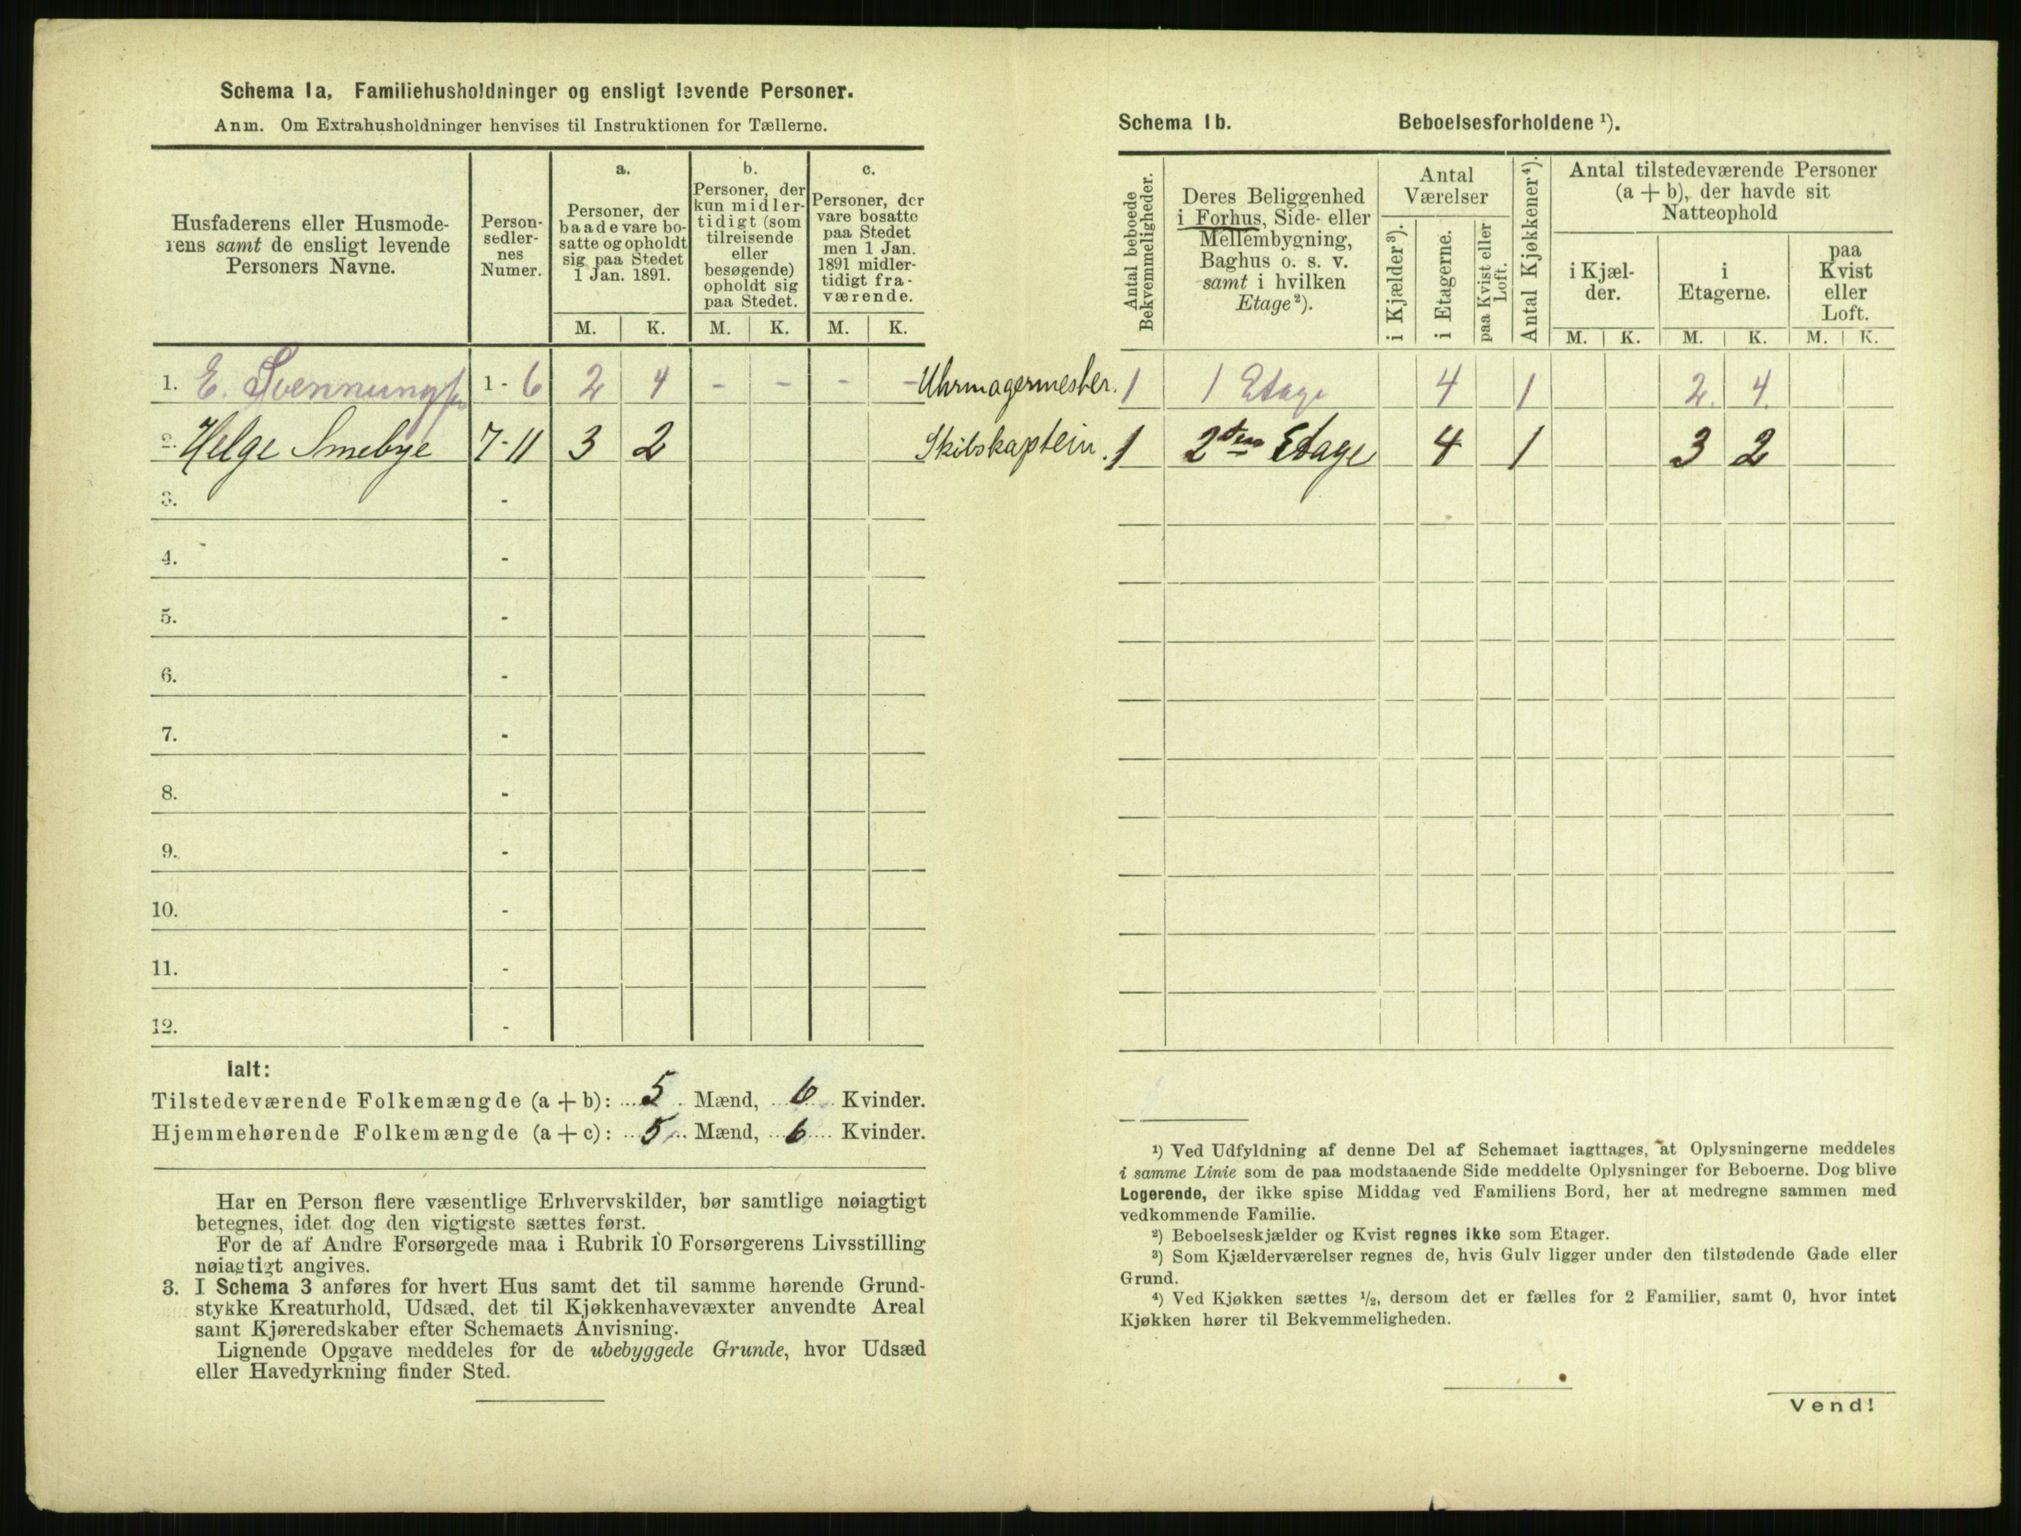 Schema 1a. Familiehusholdninger og ensligt levende Personer.
Anm. Om Extrahusholdninger henvises til Instruktionen for Tællerne.
Husfaderens eller Husmode-
rens samt de ensligt levende
Personers Navne.
Person-
sedler-
nes
Numer.
a.
Personer, der
baade vare bo-
satte og opholdt
sig paa Stedet
1 Jan. 1891.
b.
Personer, der
kun midler-
tidigt (som
tilreisende
eller
besøgende)
opholdt sig
paa Stedet.
c.
Personer, der
vare bosatte
paa Stedet
men 1 Jan.
1891 midler-
tidigt fra-
værende.
M. K. M. K. M. K.
1. E. Svennungsen 1 - 6 2 4 - - - - Uhrmagermester.
2. Helge Smebye 7 - 11 3 2 Skibskaptein.
3. -
4. -
5. -
6. -
7. -
8. -
9. -
10. -
11. -
12. -
Ialt:
Tilstedeværende Folkemængde (a + b): 5 Mænd, 6 Kvinder.
Hjemmehørende Folkemængde (a + c): 5 Mænd, 6 Kvinder.
Har en Person flere væsentlige Erhvervskilder, bør samtlige nøiagtigt
betegnes, idet dog den vigtigste sættes først.
For de af Andre Forsørgede maa i Rubrik 10 Forsørgerens Livsstilling
nøiagtigt angives.
3. I Schema 3 anføres for hvert Hus samt det til samme hørende Grund-
stykke Kreaturhold, Udsæd, det til Kjøkkenhavevæxter anvendte Areal
samt Kjøreredskaber efter Schemaets Anvisning.
Lignende Opgave meddeles for de ubebyggede Grunde, hvor Udsæd
eller Havedyrkning finder Sted.
Schema 1b. Beboelsesforholdene ¹).
Antal beboede
Bekvemmeligheder.
Deres Beliggenhed
i Forhus, Side- eller
Mellembygning,
Baghus o. s. v.
samt i hvilken
Etage²).
Antal
Værelser
i Kjælder³).
i Etagerne.
paa Kvist eller
Loft.
Antal Kjøkkener⁴).
Antal tilstedeværende Personer
(a + b), der havde sit
Natteophold
i Kjæl-
der.
i
Etagerne.
paa
Kvist
eller
Loft.
M. K. M. K. M. K.
1 1 Etage 4 1 2. 4.
1 2den Etage 4 1 3 2
¹) Ved Udfyldning af denne Del af Schemaet iagttages, at Oplysningerne meddeles
i samme Linie som de paa modstaaende Side meddelte Oplysninger for Beboerne. Dog blive
Logerende, der ikke spise Middag ved Familiens Bord, her at medregne sammen med
vedkommende Familie.
²) Beboelseskjælder og Kvist regnes ikke som Etager.
³) Som Kjælderværelser regnes de, hvis Gulv ligger under den tilstødende Gade eller
Grund.
⁴) Ved Kjøkken sættes ½, dersom det er fælles for 2 Familier, samt 0, hvor intet
Kjøkken hører til Bekvemmeligheden.
Vend!